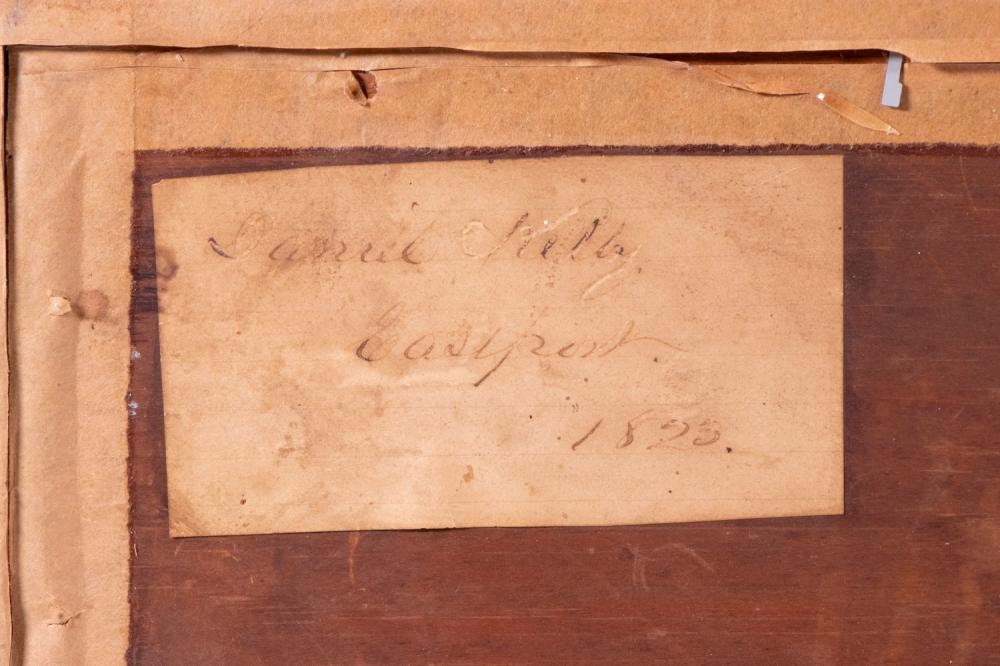 Daniel Kelby
Eastport.
1823.